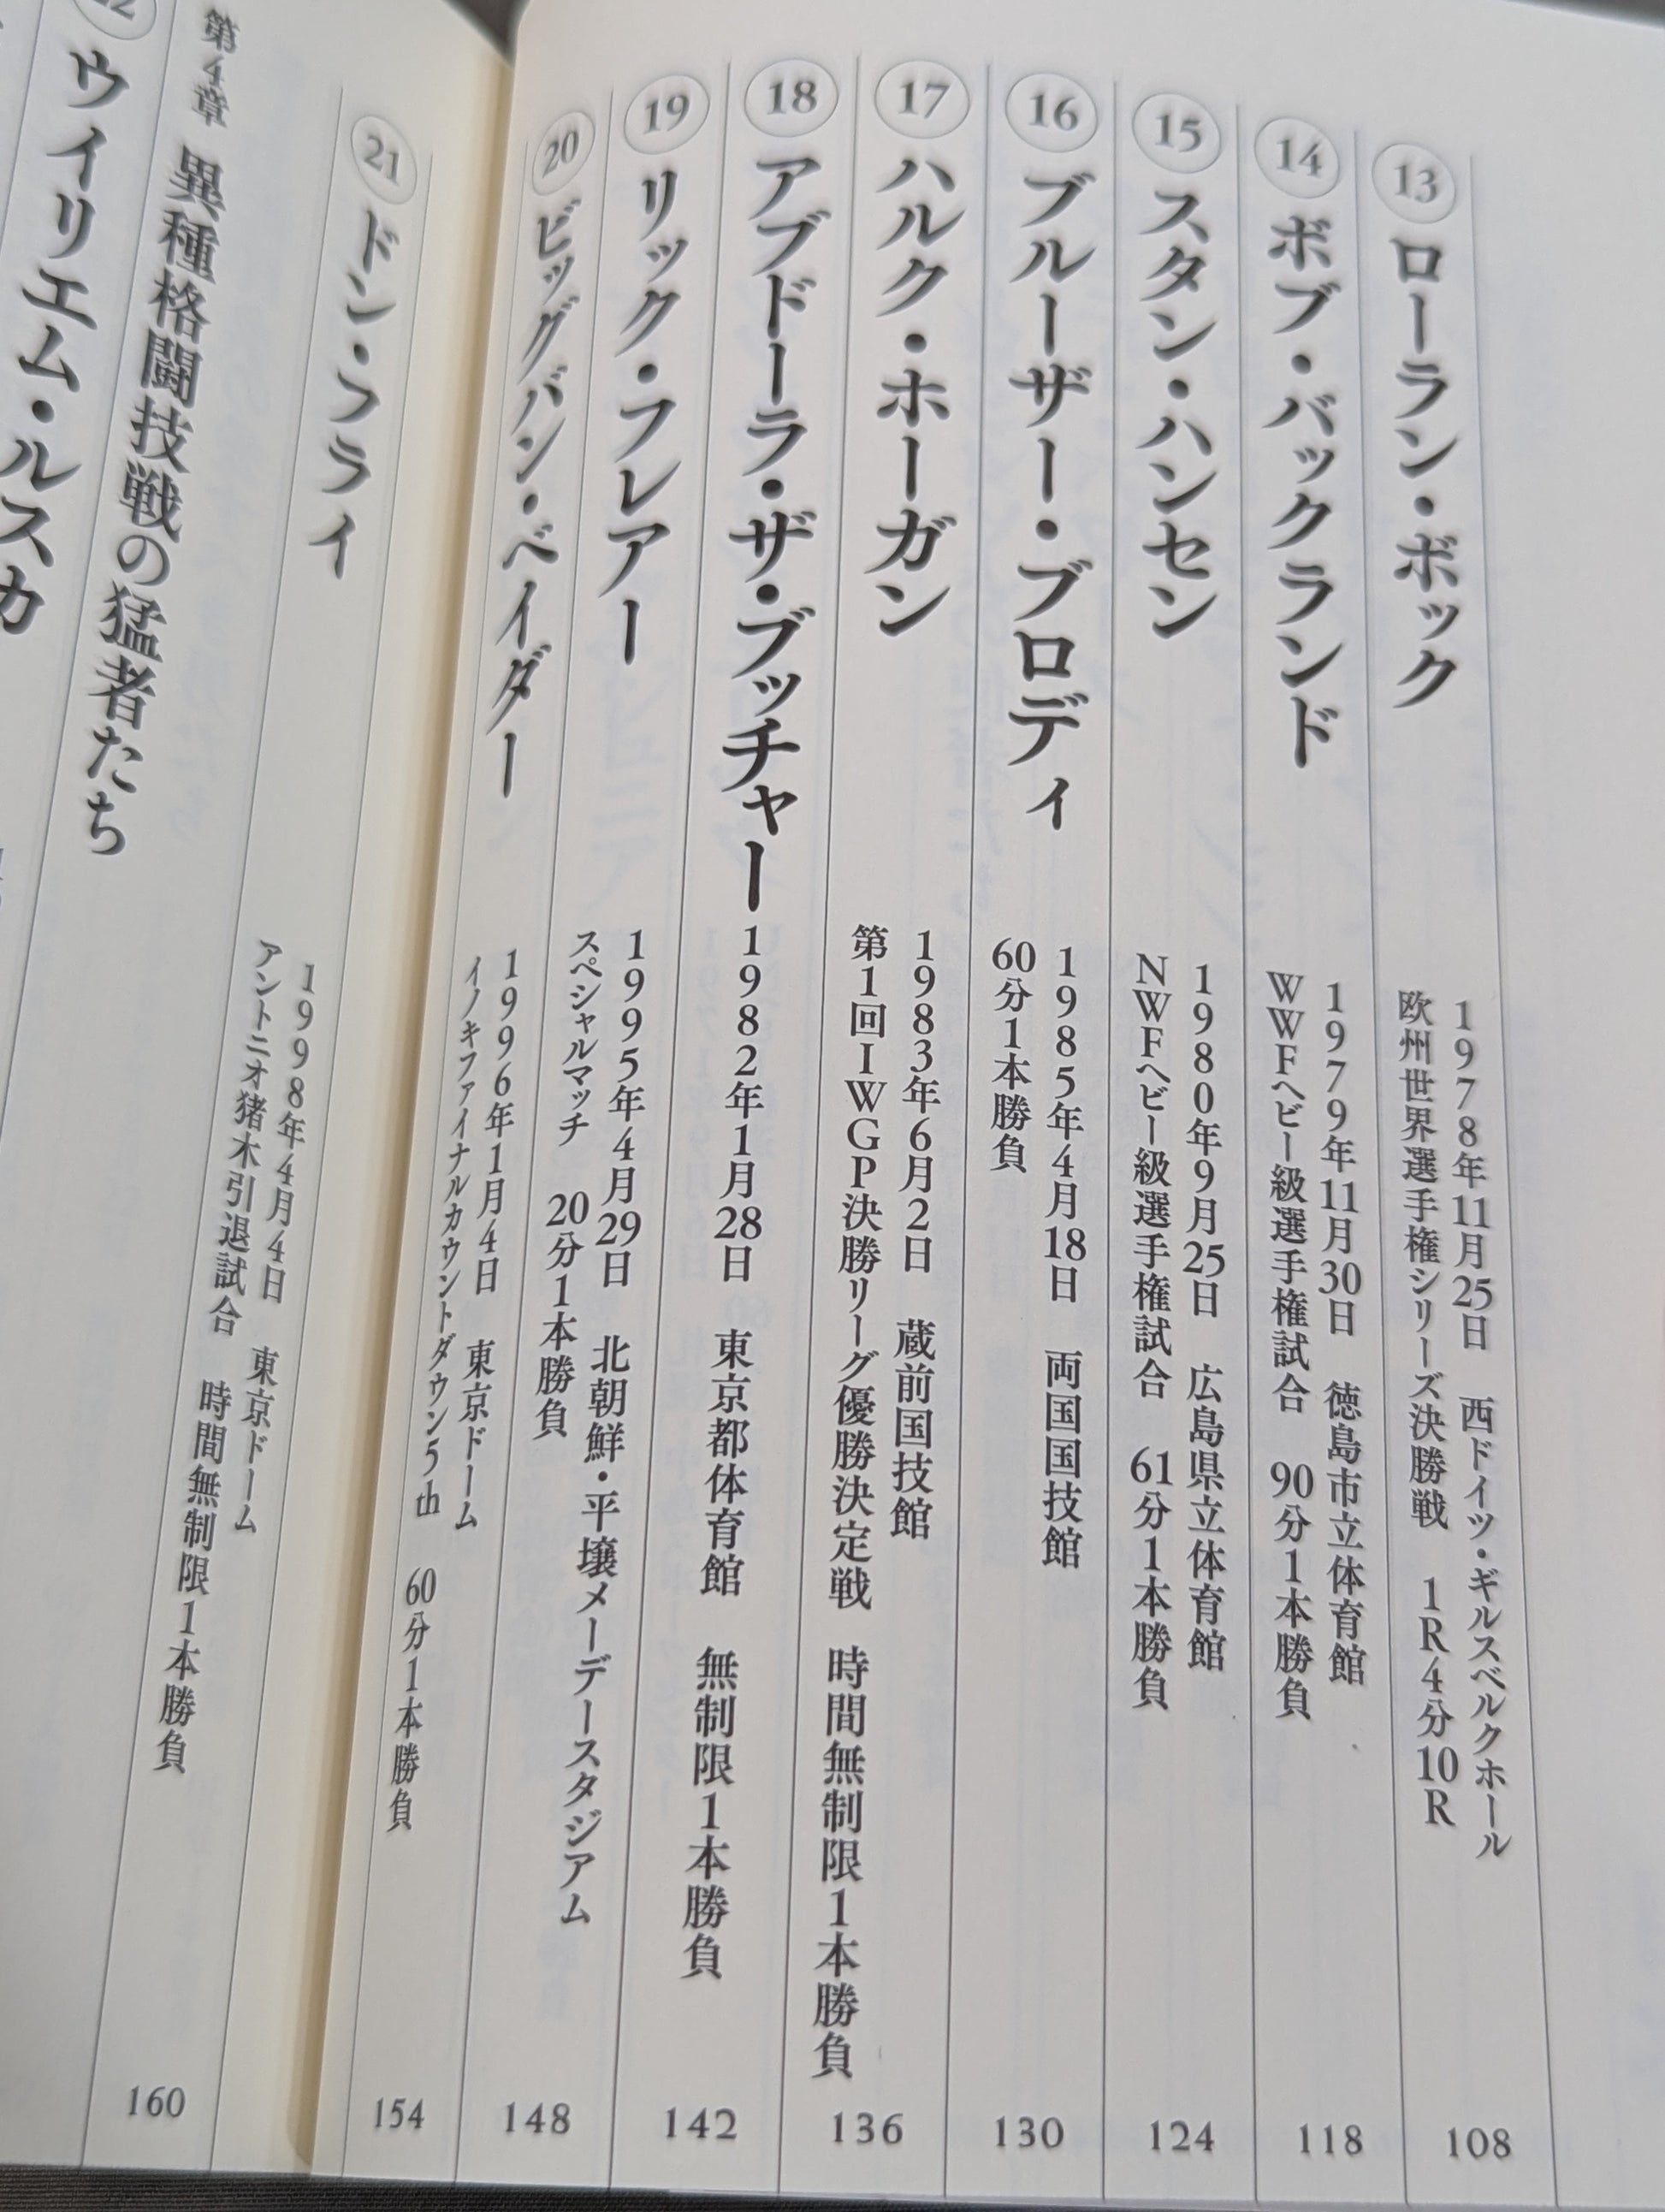 13
ローラン・ボック
1978年11月25日　西ドイツ・ギルスベルクホール
欧州世界選手権シリーズ決勝戦　1R4分10R
108
14
ボブ・バックランド
1979年11月30日　徳島市立体育館
WWFヘビー級選手権試合　90分1本勝負
118
15
スタン・ハンセン
1980年9月25日　広島県立体育館
NWFヘビー級選手権試合　61分1本勝負
124
16
ブルーザー・ブロディ
1985年4月18日　両国国技館
60分1本勝負
130
17
ハルク・ホーガン
1983年6月2日　蔵前国技館
第1回IWGP決勝リーグ優勝決定戦　時間無制限1本勝負
136
18
アブドーラ・ザ・ブッチャー
1982年1月28日　東京都体育館　無制限1本勝負
142
19
リック・フレアー
1995年4月29日　北朝鮮・平壌メーデースタジアム
スペシャルマッチ　20分1本勝負
148
20
ビッグバン・ベイダー
1996年1月4日　東京ドーム
イノキファイナルカウントダウン5th　60分1本勝負
154
21
ドン・フライ
1998年4月4日　東京ドーム
アントニオ猪木引退試合　時間無制限1本勝負
160
第4章　異種格闘技戦の猛者たち
ウイリエム・ルスカ